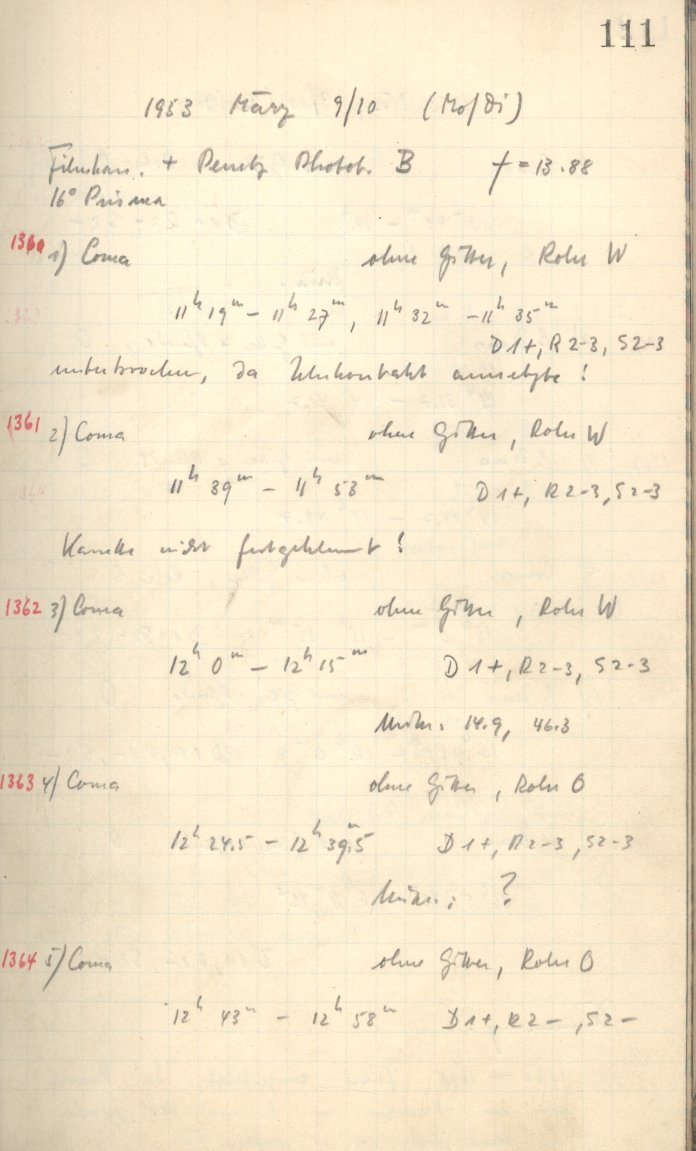 111
1953 März 9/10 (Mo/Di)
Filmkam. + Perutz Photot. B f = 13.88
16° Prisma
1360 1) Coma ohne Gitter, Rohr W
11h 19m – 11h 27m, 11h 32m – 11h 35m
D 1+, R 2-3, S 2-3
unterbrochen, da Uhrkontakt aussetzte!
1361 2) Coma ohne Gitter, Rohr W
11h 39m – 11h 53m D 1+, R 2-3, S 2-3
Kassette nicht festgeklemmt!
1362 3) Coma ohne Gitter, Rohr W
12h 0m – 12h 15m D 1+, R 2-3, S 2-3
Mikr. 14.9, 46.3
1363 4) Coma ohne Gitter, Rohr O
12h 24.5 – 12h 39m.5 D 1+, R 2-3, S 2-3
Mikr.: ?
1364 5) Coma ohne Gitter, Rohr O
12h 43m – 12h 58m D 1+, R 2–, S 2–